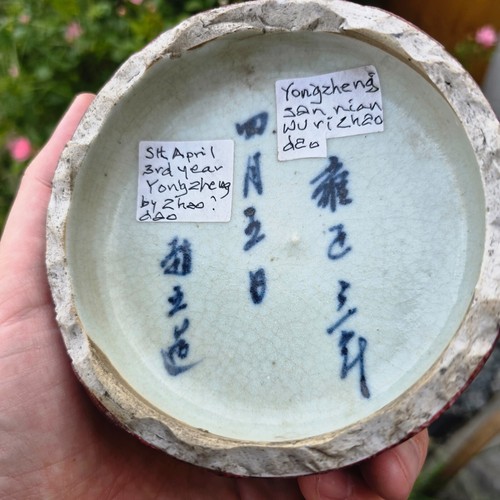 Yongzheng
san nian
wu ri Zhao
dao
5th April
3rd year
Yongzheng
by Zhao?
dao
雍正三年
四月五日
造